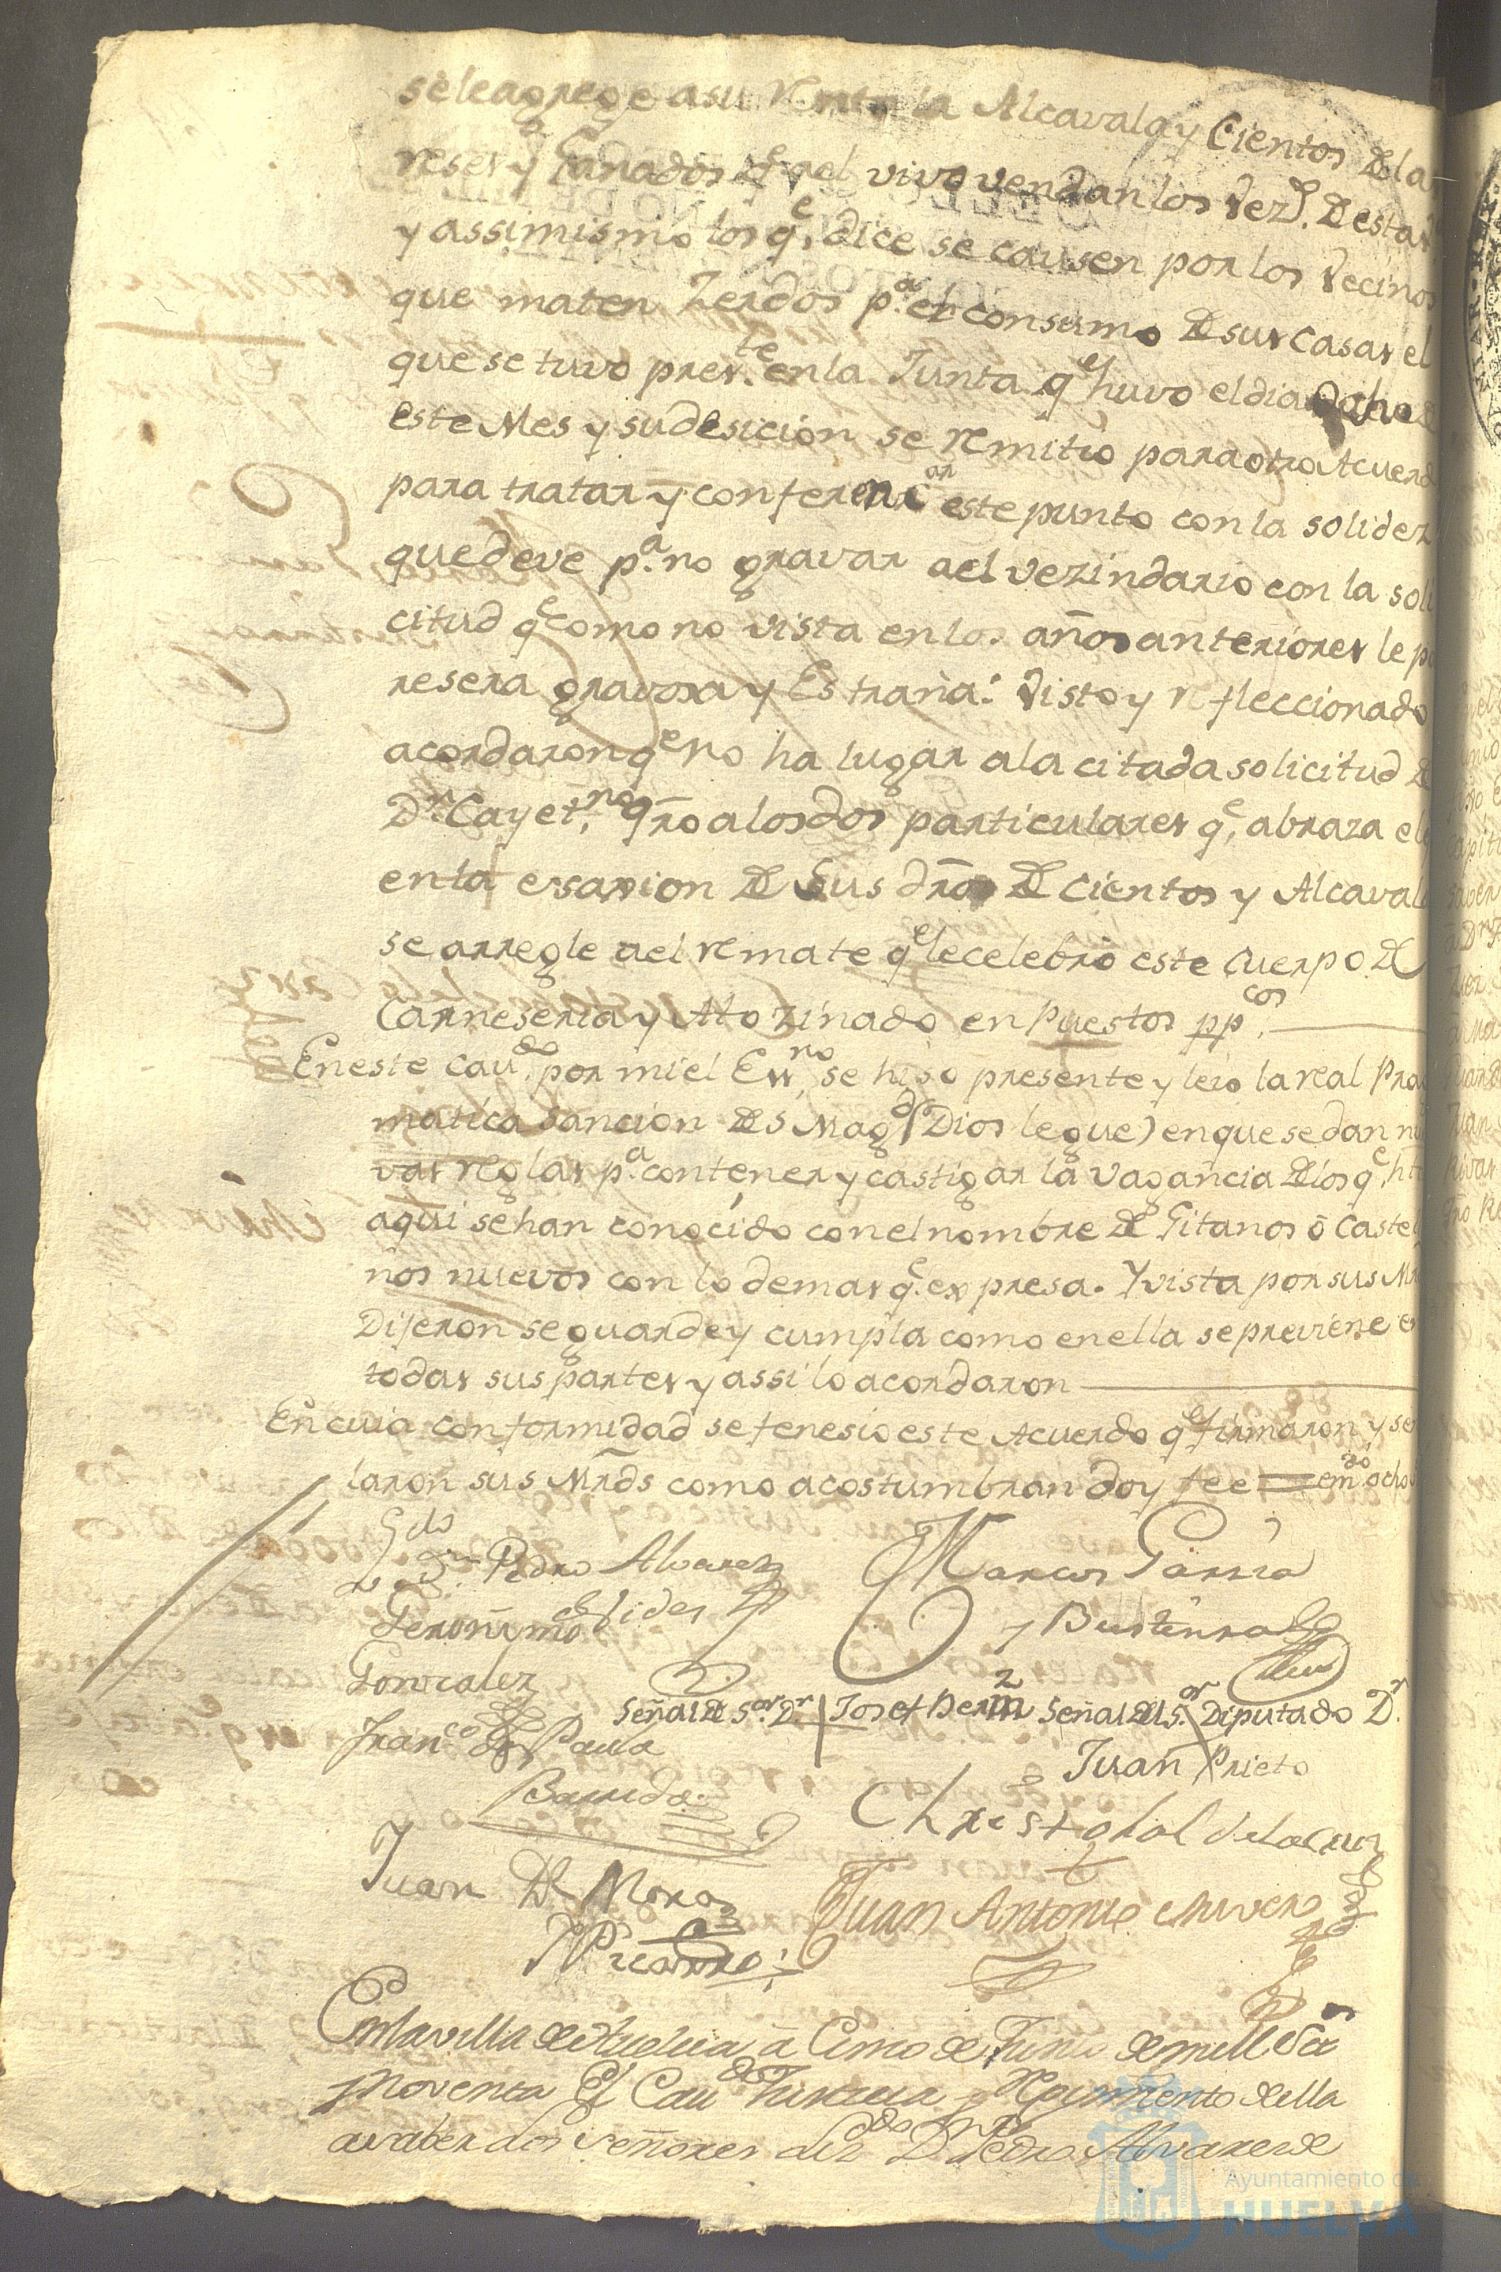 se le agrege a su renta la Alcavala y Cientos de la
reses y Ganados qe. en el vivo vendan los Vezs. de esta
y assimismo los qe. dice se causen por los Vecinos
que maten Zerdos pa. el consumo de sus casas el
que se tuvo preste. en la Junta qe. huvo el dia ocho de
este Mes y su desicion se remitio para otro Acuerd
para tratar y conferenciar este punto con la solidez
que deve pa. no gravar a el vezindario con la soli
citud qe como no vista en los años anteriores le pa
resera gravosa y Estraña: Visto y refleccionado
acordaron qe. no ha lugar a la citada solicitud de
Dn. Cayetno. qro a los dos particulares qe. abraza el
en la exasion de Sus dros de Cientos y Alcaval
se arregle a el remate qe. le celebrò este Cuerpo de
Carneseria y Atozinado en Puestos ppcos.
En este Cavdo. por mi el Essno. se hiso presente y leio la real Prac
matica sancion de S. Magd (Dios le gue) en que se dan nu
vas reglas pa. contener y castigar la vagancia de los qe. h
aqui se han conocido con el nombre de Gitanos ò Castel
nos nuevos con lo demas qe. expresa. Y vista por sus Mr
Dijeron se guarde y cumpla como en ella se previene e
todas sus partes y assi lo acordaron
En cuia conformidad se fenesio este Acuerdo qe. firmaron y se
laron sus Mrds como acostumbran doy fee = emdo. ocho
Lizdo Dn. Pedro Alvarez
Marcos Garsia
Geronimo
y Bustinza
Gonzalez
Señal de Sor. Dn. Josef Berm Señal del Sor. Diputado Dn.
Franco de Paula
Juan Prieto
Barreda
Christobal de la Cruz
Juan de Mora
Juan Antonio
Picardo
En la villa de Huelva à Cinco de Junio de mill Setos
Noventa El Cavdo Justicia y Regimiento de ella
a saber los Señores Lizdo Dn. Pedro Alvarez de
Ayuntamiento de
HUELVA